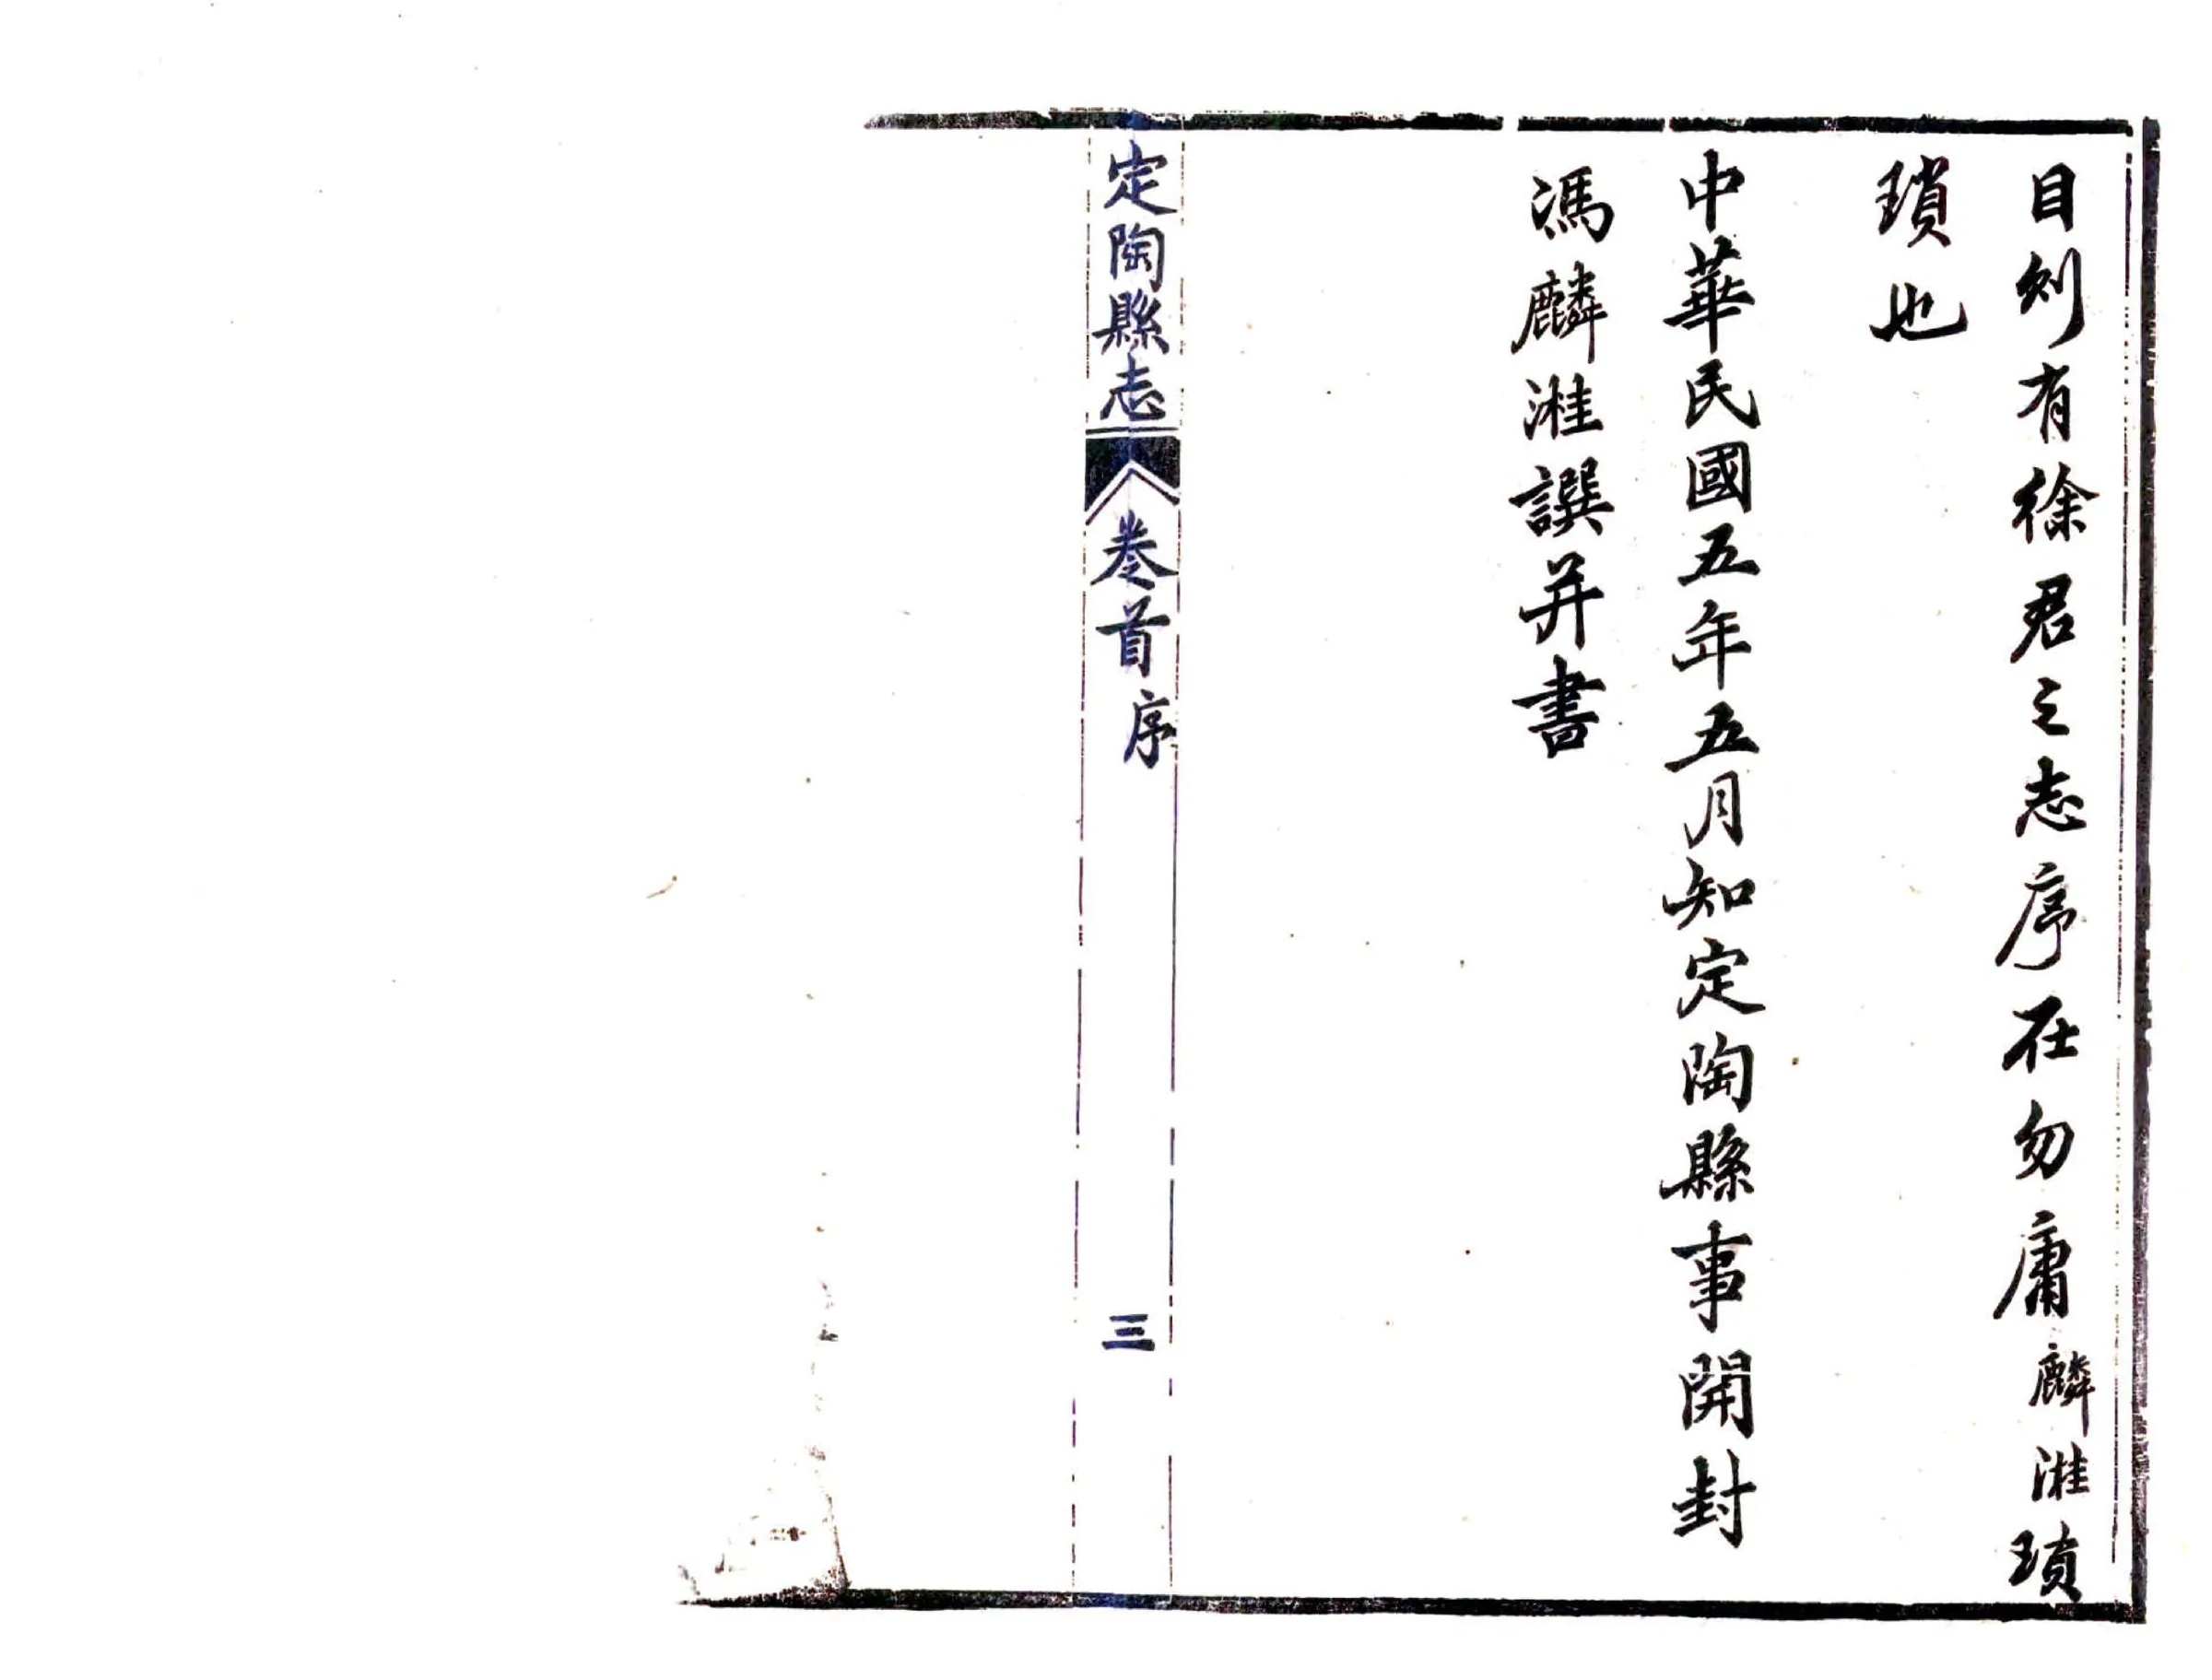 目則有徐君之志序在勿庸麟溎瑣
瑣也
中華民國五年五月知定陶縣事開封
馮麟溎譔并書
定陶縣志 卷首 序 三